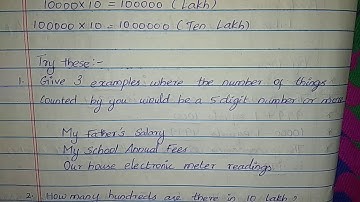 10000×10 = 100000 (Lakh)
100000 ×10 = 1000000 (Ten Lakh)
Try these:-
1. Give 3 examples where the number of things
counted by you would be a 5 digit number or more
My Father's Salary
My School Annual Fees
Our house electronic meter readings
2. How many hundreds are there in 10 lakh?